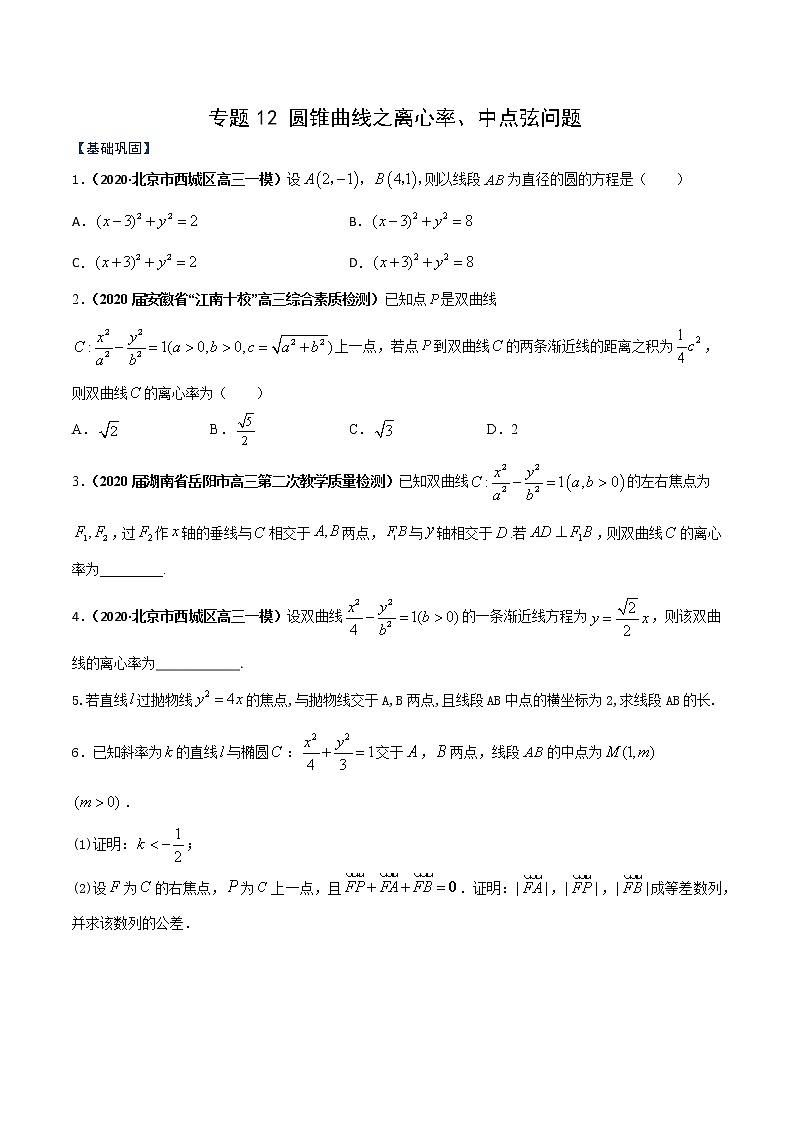 专题12 圆锥曲线之离心率、中点弦问题
【基础巩固】
1.(2020·北京市西城区高三一模)设 A(2,-1), B(4,1),则以线段 AB 为直径的圆的方程是( )
A. (x-3)²+y²=2 B. (x-3)²+y²=8
C. (x+3)²+y²=2 D. (x+3)²+y²=8
2.(2020届安徽省“江南十校”高三综合素质检测)已知点 P 是双曲线
C: x²/a² - y²/b² = 1(a>0,b>0,c=√(a²+b²))上一点,若点 P 到双曲线 C 的两条渐近线的距离之积为 1/4 c²,
则双曲线 C 的离心率为( )
A. √2 B. √5/2 C. √3 D. 2
3.(2020届湖南省岳阳市高三第二次教学质量检测)已知双曲线 C: x²/a² - y²/b² = 1(a,b>0)的左右焦点为
F₁,F₂,过 F₂ 作 x 轴的垂线与 C 相交于 A,B 两点, F₁B 与 y 轴相交于 D.若 AD⊥F₁B,则双曲线 C 的离心
率为_________.
4.(2020·北京市西城区高三一模)设双曲线 x²/4 - y²/b² = 1(b>0)的一条渐近线方程为 y = √2/2 x,则该双曲
线的离心率为____________.
5.若直线 l 过抛物线 y²=4x 的焦点,与抛物线交于A,B两点,且线段AB中点的横坐标为2,求线段AB的长.
6.已知斜率为 k 的直线 l 与椭圆 C: x²/4 + y²/3 = 1交于 A, B 两点,线段 AB 的中点为 M(1,m)
(m>0).
(1)证明: k < -1/2;
(2)设 F 为 C 的右焦点, P 为 C 上一点,且 FP+FA+FB=0.证明:|FA|,|FP|,|FB|成等差数列,
并求该数列的公差.